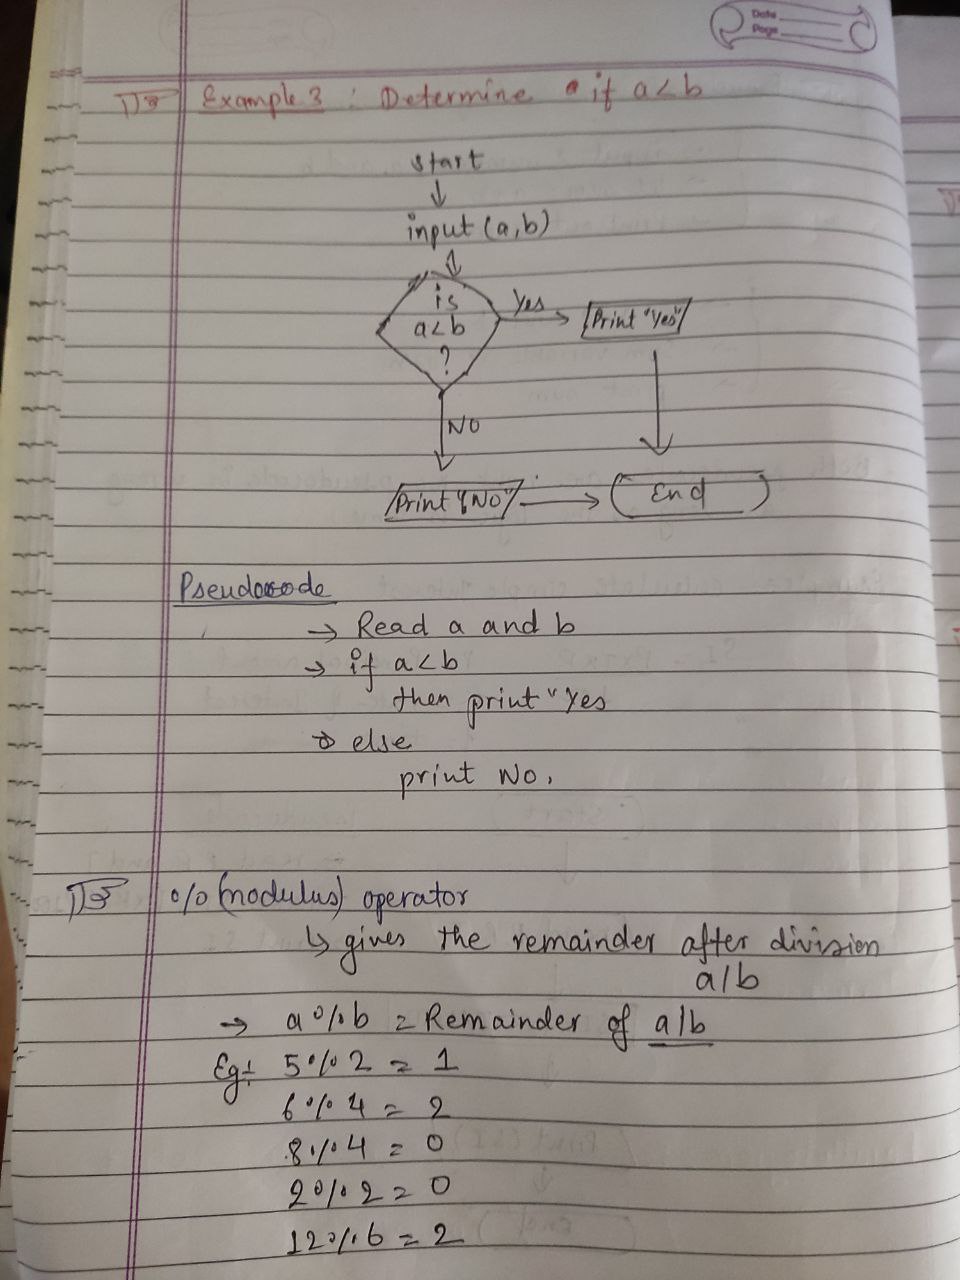 Date
Page
Example 3 : Determine if a<b
start
input (a,b)
is
a<b
?
Yes
Print "Yes"
NO
Print "NO"
End
Pseudocode
→ Read a and b
→ if a<b
then print "Yes
→ else
print No.
% (modulus) operator
↳ gives the remainder after division
a/b
→ a % b = Remainder of a/b
Eg:- 5 % 2 = 1
6 % 4 = 2
8 % 4 = 0
2 % 2 = 0
12 % 6 = 2